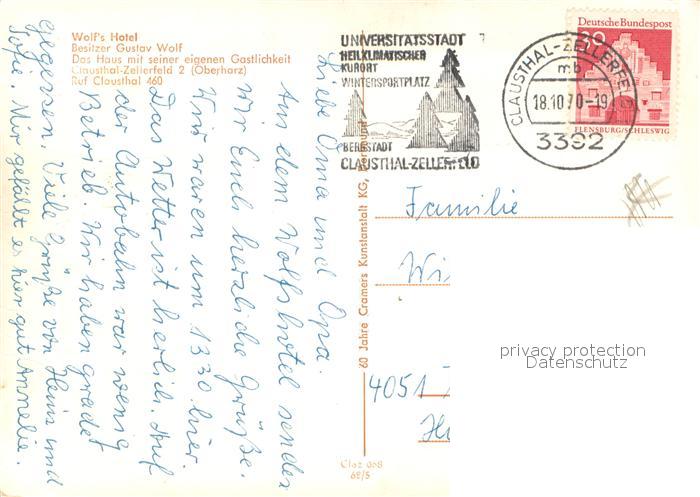 Wolf's Hotel
Besitzer Gustav Wolf
Das Haus mit seiner eigenen Gastlichkeit
Clausthal-Zellerfeld 2 (Oberharz)
Ruf Clausthal 460
Liebe Oma und Opa.
Aus dem Wolfshotel senden
wir Euch herzliche Grüße.
Wir waren um 13 30 hier
Das Wetter ist herlich. Auf
der Autobahn war wenig
Betrieb. Wir haben grade
gegessen. Viele Grüße von Heinz und
Sofie. Mir gefällt es hier gut Annelie.
60 Jahre Cramers Kunstanstalt KG, Dortmund
Claz 068
62/5
UNIVERSITÄTSSTADT
HEILKLIMATISCHER
KURORT
WINTERSPORTPLATZ
BERGSTADT
CLAUSTHAL-ZELLERFELD
CLAUSTHAL-ZELLERFELD
mb
18.10.70-19
3392
Deutsche Bundespost
30
FLENSBURG/SCHLESWIG
Familie
Wi
4051
privacy protection
Datenschutz